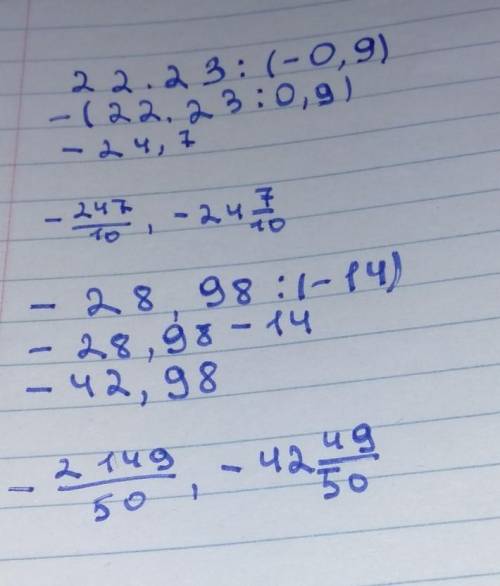 22.23:(-0,9)
-(22.23:0,9)
-24,7
-247/10, -24 7/10
-28,98:(-14)
-28,98-14
-42,98
-2149/50, -42 49/50